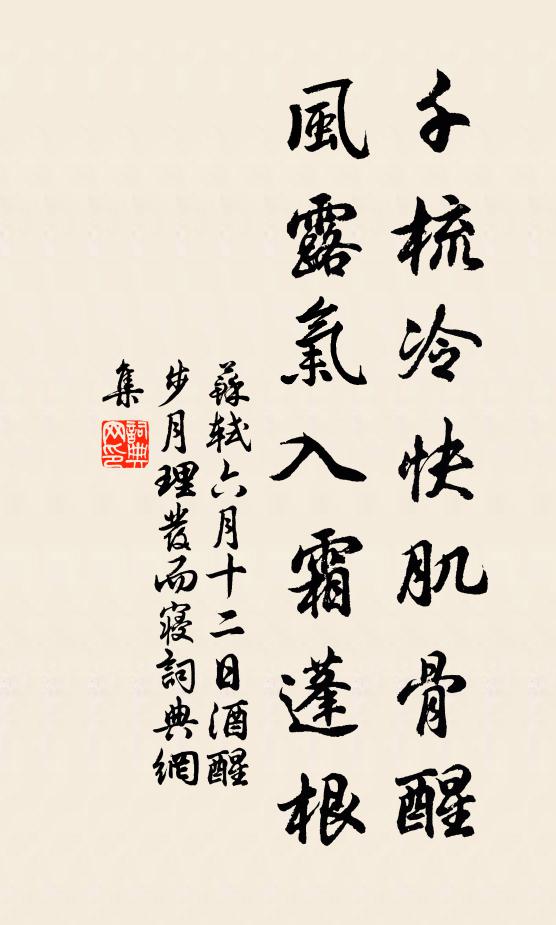 千梳冷快肌骨醒
風露氣入霜蓬根
蘇軾六月十二日酒醒
步月理發而寢詞典網
集
詞典网印